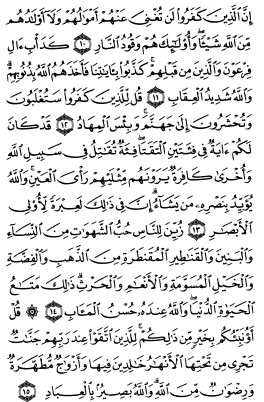 إِنَّ ٱلَّذِينَ كَفَرُوا۟ لَن تُغْنِىَ عَنْهُمْ أَمْوَٰلُهُمْ وَلَآ أَوْلَٰدُهُم
مِّنَ ٱللَّهِ شَيْـًٔا ۖ وَأُو۟لَٰٓئِكَ هُمْ وَقُودُ ٱلنَّارِ ١٠ كَدَأْبِ ءَالِ
فِرْعَوْنَ وَٱلَّذِينَ مِن قَبْلِهِمْ ۚ كَذَّبُوا۟ بِـَٔايَٰتِنَا فَأَخَذَهُمُ ٱللَّهُ بِذُنُوبِهِمْ ۗ
وَٱللَّهُ شَدِيدُ ٱلْعِقَابِ ١١ قُل لِّلَّذِينَ كَفَرُوا۟ سَتُغْلَبُونَ
وَتُحْشَرُونَ إِلَىٰ جَهَنَّمَ ۚ وَبِئْسَ ٱلْمِهَادُ ١٢ قَدْ كَانَ
لَكُمْ ءَايَةٌ فِى فِئَتَيْنِ ٱلْتَقَتَا ۖ فِئَةٌ تُقَٰتِلُ فِى سَبِيلِ ٱللَّهِ
وَأُخْرَىٰ كَافِرَةٌ يَرَوْنَهُم مِّثْلَيْهِمْ رَأْىَ ٱلْعَيْنِ ۚ وَٱللَّهُ
يُؤَيِّدُ بِنَصْرِهِۦ مَن يَشَآءُ ۗ إِنَّ فِى ذَٰلِكَ لَعِبْرَةً لِّأُو۟لِى
ٱلْأَبْصَٰرِ ١٣ زُيِّنَ لِلنَّاسِ حُبُّ ٱلشَّهَوَٰتِ مِنَ ٱلنِّسَآءِ
وَٱلْبَنِينَ وَٱلْقَنَٰطِيرِ ٱلْمُقَنطَرَةِ مِنَ ٱلذَّهَبِ وَٱلْفِضَّةِ
وَٱلْخَيْلِ ٱلْمُسَوَّمَةِ وَٱلْأَنْعَٰمِ وَٱلْحَرْثِ ۗ ذَٰلِكَ مَتَٰعُ
ٱلْحَيَوٰةِ ٱلدُّنْيَا ۖ وَٱللَّهُ عِندَهُۥ حُسْنُ ٱلْمَـَٔابِ ١٤ ۞ قُلْ
أَؤُنَبِّئُكُم بِخَيْرٍ مِّن ذَٰلِكُمْ ۚ لِلَّذِينَ ٱتَّقَوْا۟ عِندَ رَبِّهِمْ جَنَّٰتٌ
تَجْرِى مِن تَحْتِهَا ٱلْأَنْهَٰرُ خَٰلِدِينَ فِيهَا وَأَزْوَٰجٌ مُّطَهَّرَةٌ
وَرِضْوَٰنٌ مِّنَ ٱللَّهِ ۗ وَٱللَّهُ بَصِيرٌۢ بِٱلْعِبَادِ ١٥